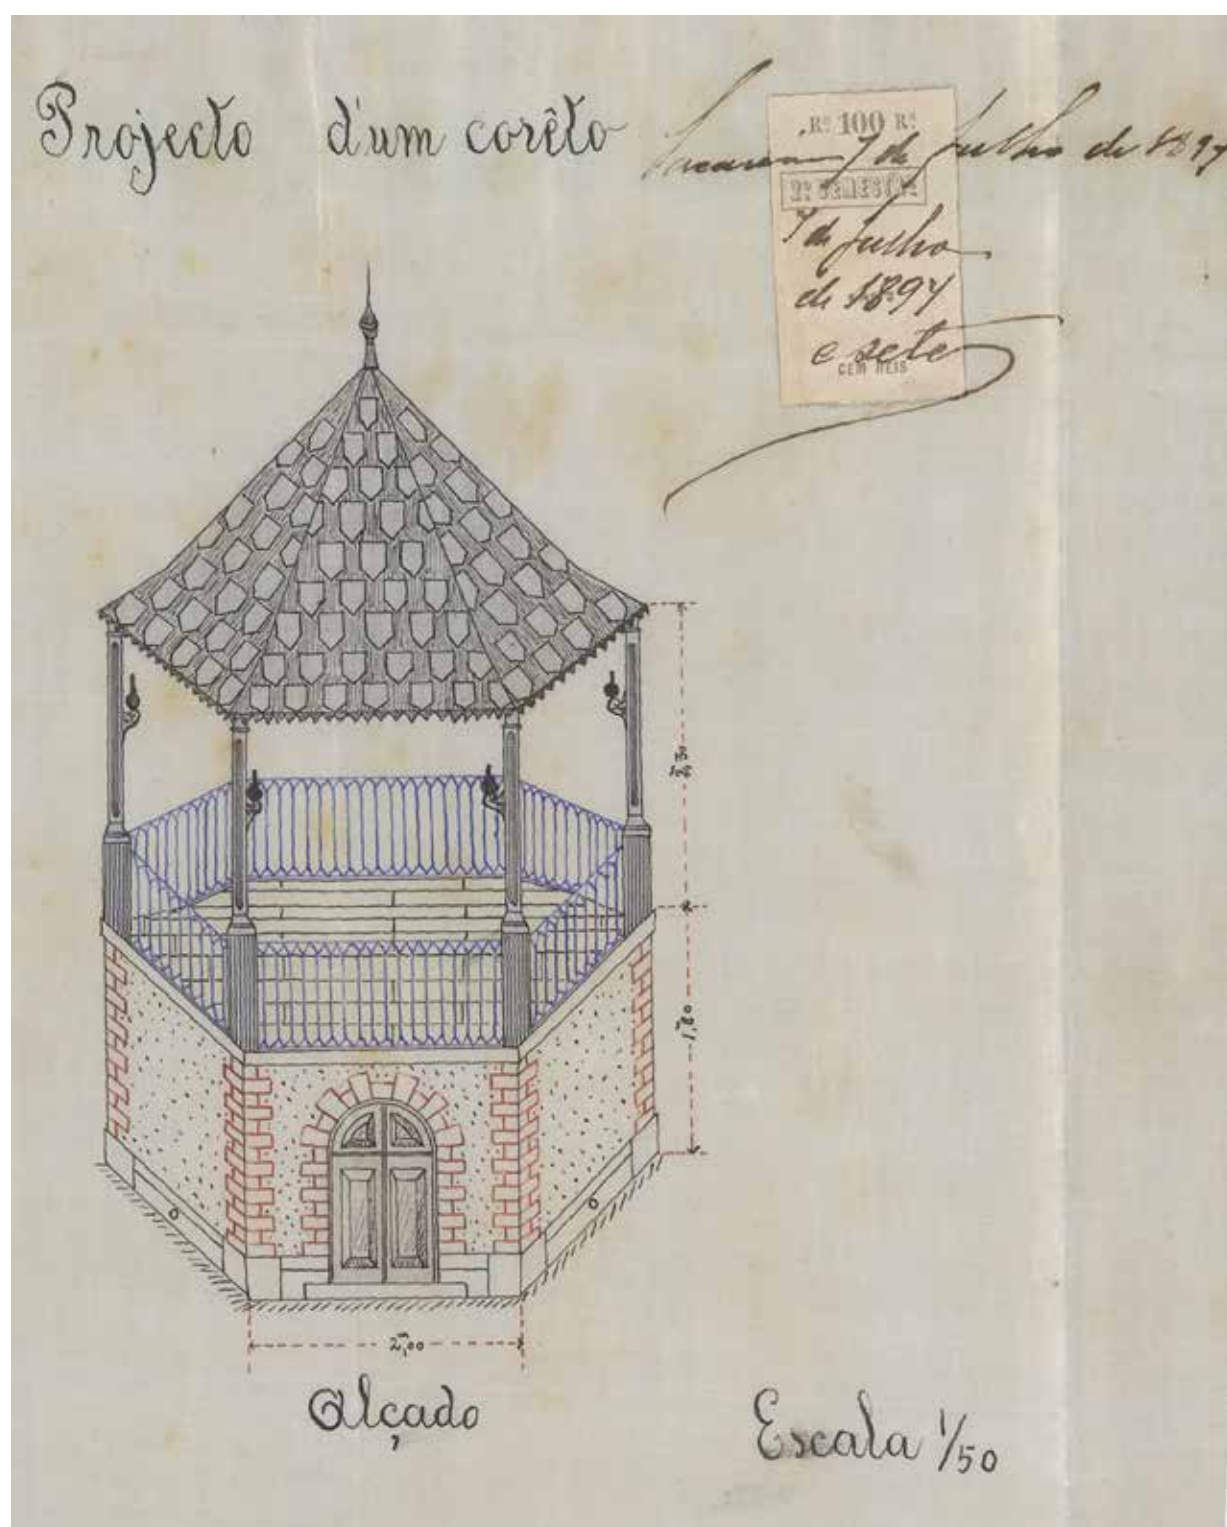 Projecto d'um corêto
Sacavem 7 de Julho de 1897
Rs 100 Rs
2º SEMESTRE
7 de Julho
de 1897
e sete
CEM REIS
2,m30
1,m80
2,m00
Alçado
Escala 1/50